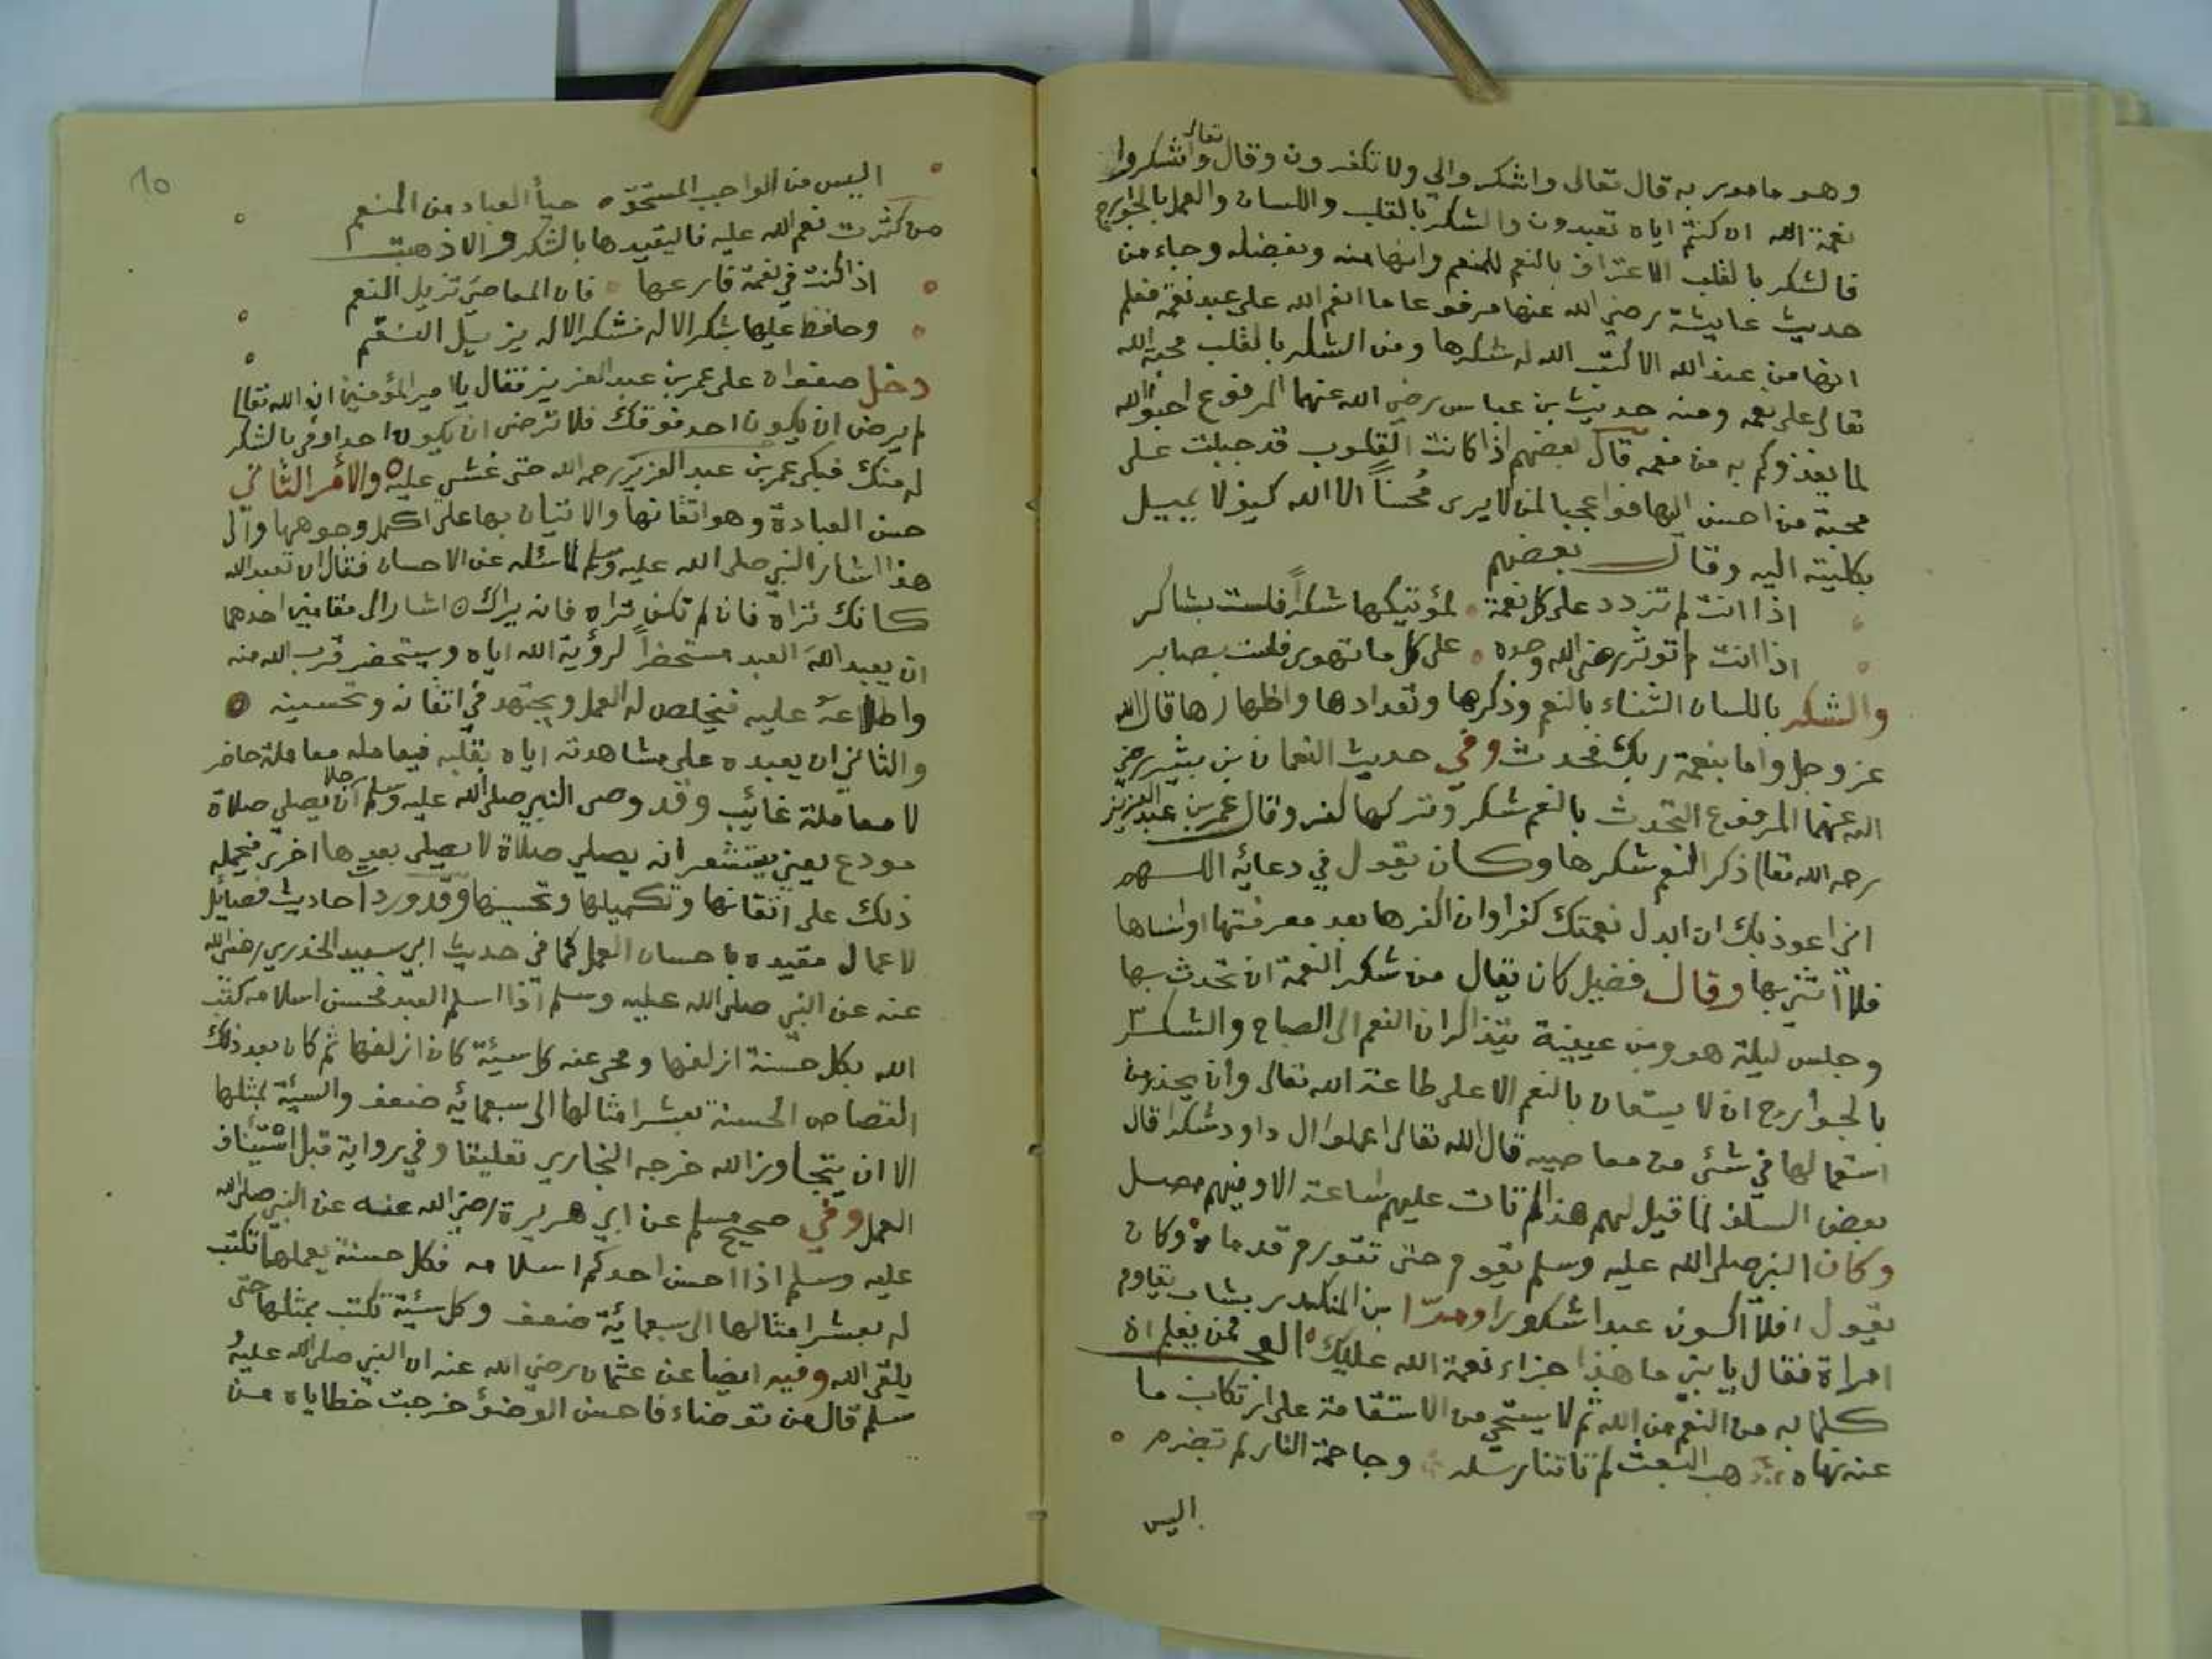 وهو مامور به قال تعالى واشكروا لي ولا تكفرون وقال تعالى واشكروا
نعمة الله ان كنتم اياه تعبدون والشكر بالقلب واللسان والعمل بالجوارح
فالشكر بالقلب الاعتراف بالنعم للمنعم وانها منه وبفضله وجاء من
حديث عايشة رضي الله عنها مرفوعا ما انعم الله على عبد نعمة فعلم
انها من عند الله الا كتب الله له شكرها ومن الشكر بالقلب محبة الله
تعالى على نعمه ومنه حديث بن عباس رضي الله عنهما المرفوع احبوا الله
لما يغذوكم به من نعمه قال بعضهم اذا كانت القلوب قد جبلت على
محبة من احسن اليها فواعجبا لمن لا يرى محسناً الا الله كيف لا يميل
بكليته اليه وقال بعضهم
اذا انت لم تزدد على كل نعمة لمؤتيكها شكراً فلست بشاكر
اذا انت لم توثر رضى الله وحده على كل ما تهوى فلست بصابر
والشكر باللسان الثناء بالنعم وذكرها وتعدادها واظهارها قال الله
عز وجل واما بنعمة ربك فحدث وفي حديث النعمان بن بشير رضي
الله عنهما المرفوع التحدث بالنعم شكر وتركها كفر وقال عمر بن عبد العزيز
رحمه الله تعالى ذكر النعم شكرها وكان يقول في دعائه اللهم
اني اعوذ بك ان ابدل نعمتك كفرا وان اكفرها بعد معرفتها او انساها
فلا اثني بها وقال فضيل كان يقال من شكر النعمة ان تحدث بها
وجلس ليلة هو وبن عيينة يتذاكران النعم الى الصباح والشكر
بالجوارح ان لا يستعان بالنعم الا على طاعة الله تعالى وان يحذر من
استعمالها في شئ من معاصيه قال الله تعالى اعملوا ال داود شكرا قال
بعض السلف لما قيل لهم هذا لم تات عليهم ساعة الا وفيهم مصل
وكان النبي صلى الله عليه وسلم يقوم حتى تتورم قدماه وكان
يقول افلا اكون عبدا شكورا ومرّ بن المنكدر بشاب يقاوم
امراة فقال يا بني ما هذا جزاء نعمة الله عليك العجب ممن يعلم ان
كلما به من النعم من الله ثم لا يستحي من الاستقامة على ارتكاب ما
عنه نهاه هب البعث لم تاتنا رسله وجاحمة النار لم تضرم
اليس
١٥
اليس من الواجب المستحق حيأ العباد من المنعم
من كثرت نعم الله عليه فاليقيدها بالشكر والا ذهبت
اذا كنت في نعمة فارعها فان المعاصي تزيل النعم
وحافظ عليها بشكر الاله فشكر الاله يزيل النقم
دخل صفوان على عمر بن عبد العزيز فقال يا امير المؤمنين ان الله تعالى
لم يرض ان يكون احد فوقك فلا ترضى ان يكون احد اوفر بالشكر
له منك فبكى عمر بن عبد العزيز رحمه الله حتى غشي عليه والأمر الثاني
حسن العبادة وهو اتقانها والاتيان بها على اكمل وجوهها والى
هذا اشار النبي صلى الله عليه وسلم لما سئل عن الاحسان فقال ان تعبد الله
كانك تراه فان لم تكن تراه فانه يراك اشار الى مقامين احدهما
ان يعبد الله العبد مستحضراً لرؤية الله اياه ويستحضر قرب الله منه
واطلاعه عليه فيخلص له العمل ويجتهد في اتقانه وتحسينه
والثاني ان يعبده على مشاهدته اياه بقلبه فيعامله معاملة حاضر
لا معاملة غائب وقد وصى النبي صلى الله عليه وسلم رجلا ان يصلي صلاة
مودع يعني يستشعر انه يصلي صلاة لا يصلي بعدها اخرى فيحمله
ذلك على اتقانها وتكميلها وتحسينها وقد ورد احاديث فضايل
الاعمال مقيده باحسان العمل كما في حديث ابي سعيد الخدري رضي الله
عنه عن النبي صلى الله عليه وسلم اذا اسلم العبد فحسن اسلامه كتب
الله بكل حسنة ازلفها ومحي عنه كل سيئة كان ازلفها ثم كان بعد ذلك
القصاص الحسنة بعشر امثالها الى سبعمائه ضعف والسيئة بمثلها
الا ان يتجاوز الله خرجه البخاري تعليقا وفي رواية قبل استيناف
العمل وفي صحيح مسلم عن ابي هريرة رضي الله عنه عن النبي صلى الله
عليه وسلم اذا احسن احدكم اسلامه فكل حسنة يعملها تكتب
له بعشر امثالها الى سبعمائة ضعف وكل سيئة تكتب بمثلها حتى
يلقى الله وفيه ايضا عن عثمان رضي الله عنه ان النبي صلى الله عليه و
سلم قال من توضاء فاحسن الوضؤ خرجت خطاياه من